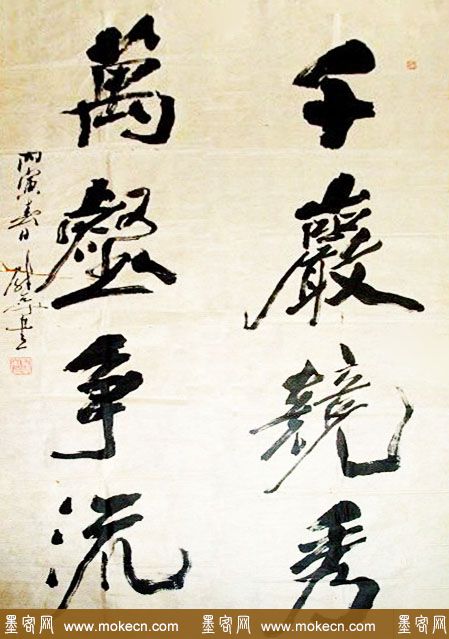 千巖競秀
萬壑争流
丙寅春日
墨客网 www.mokecn.com 墨客网 www.mokecn.com 墨客网